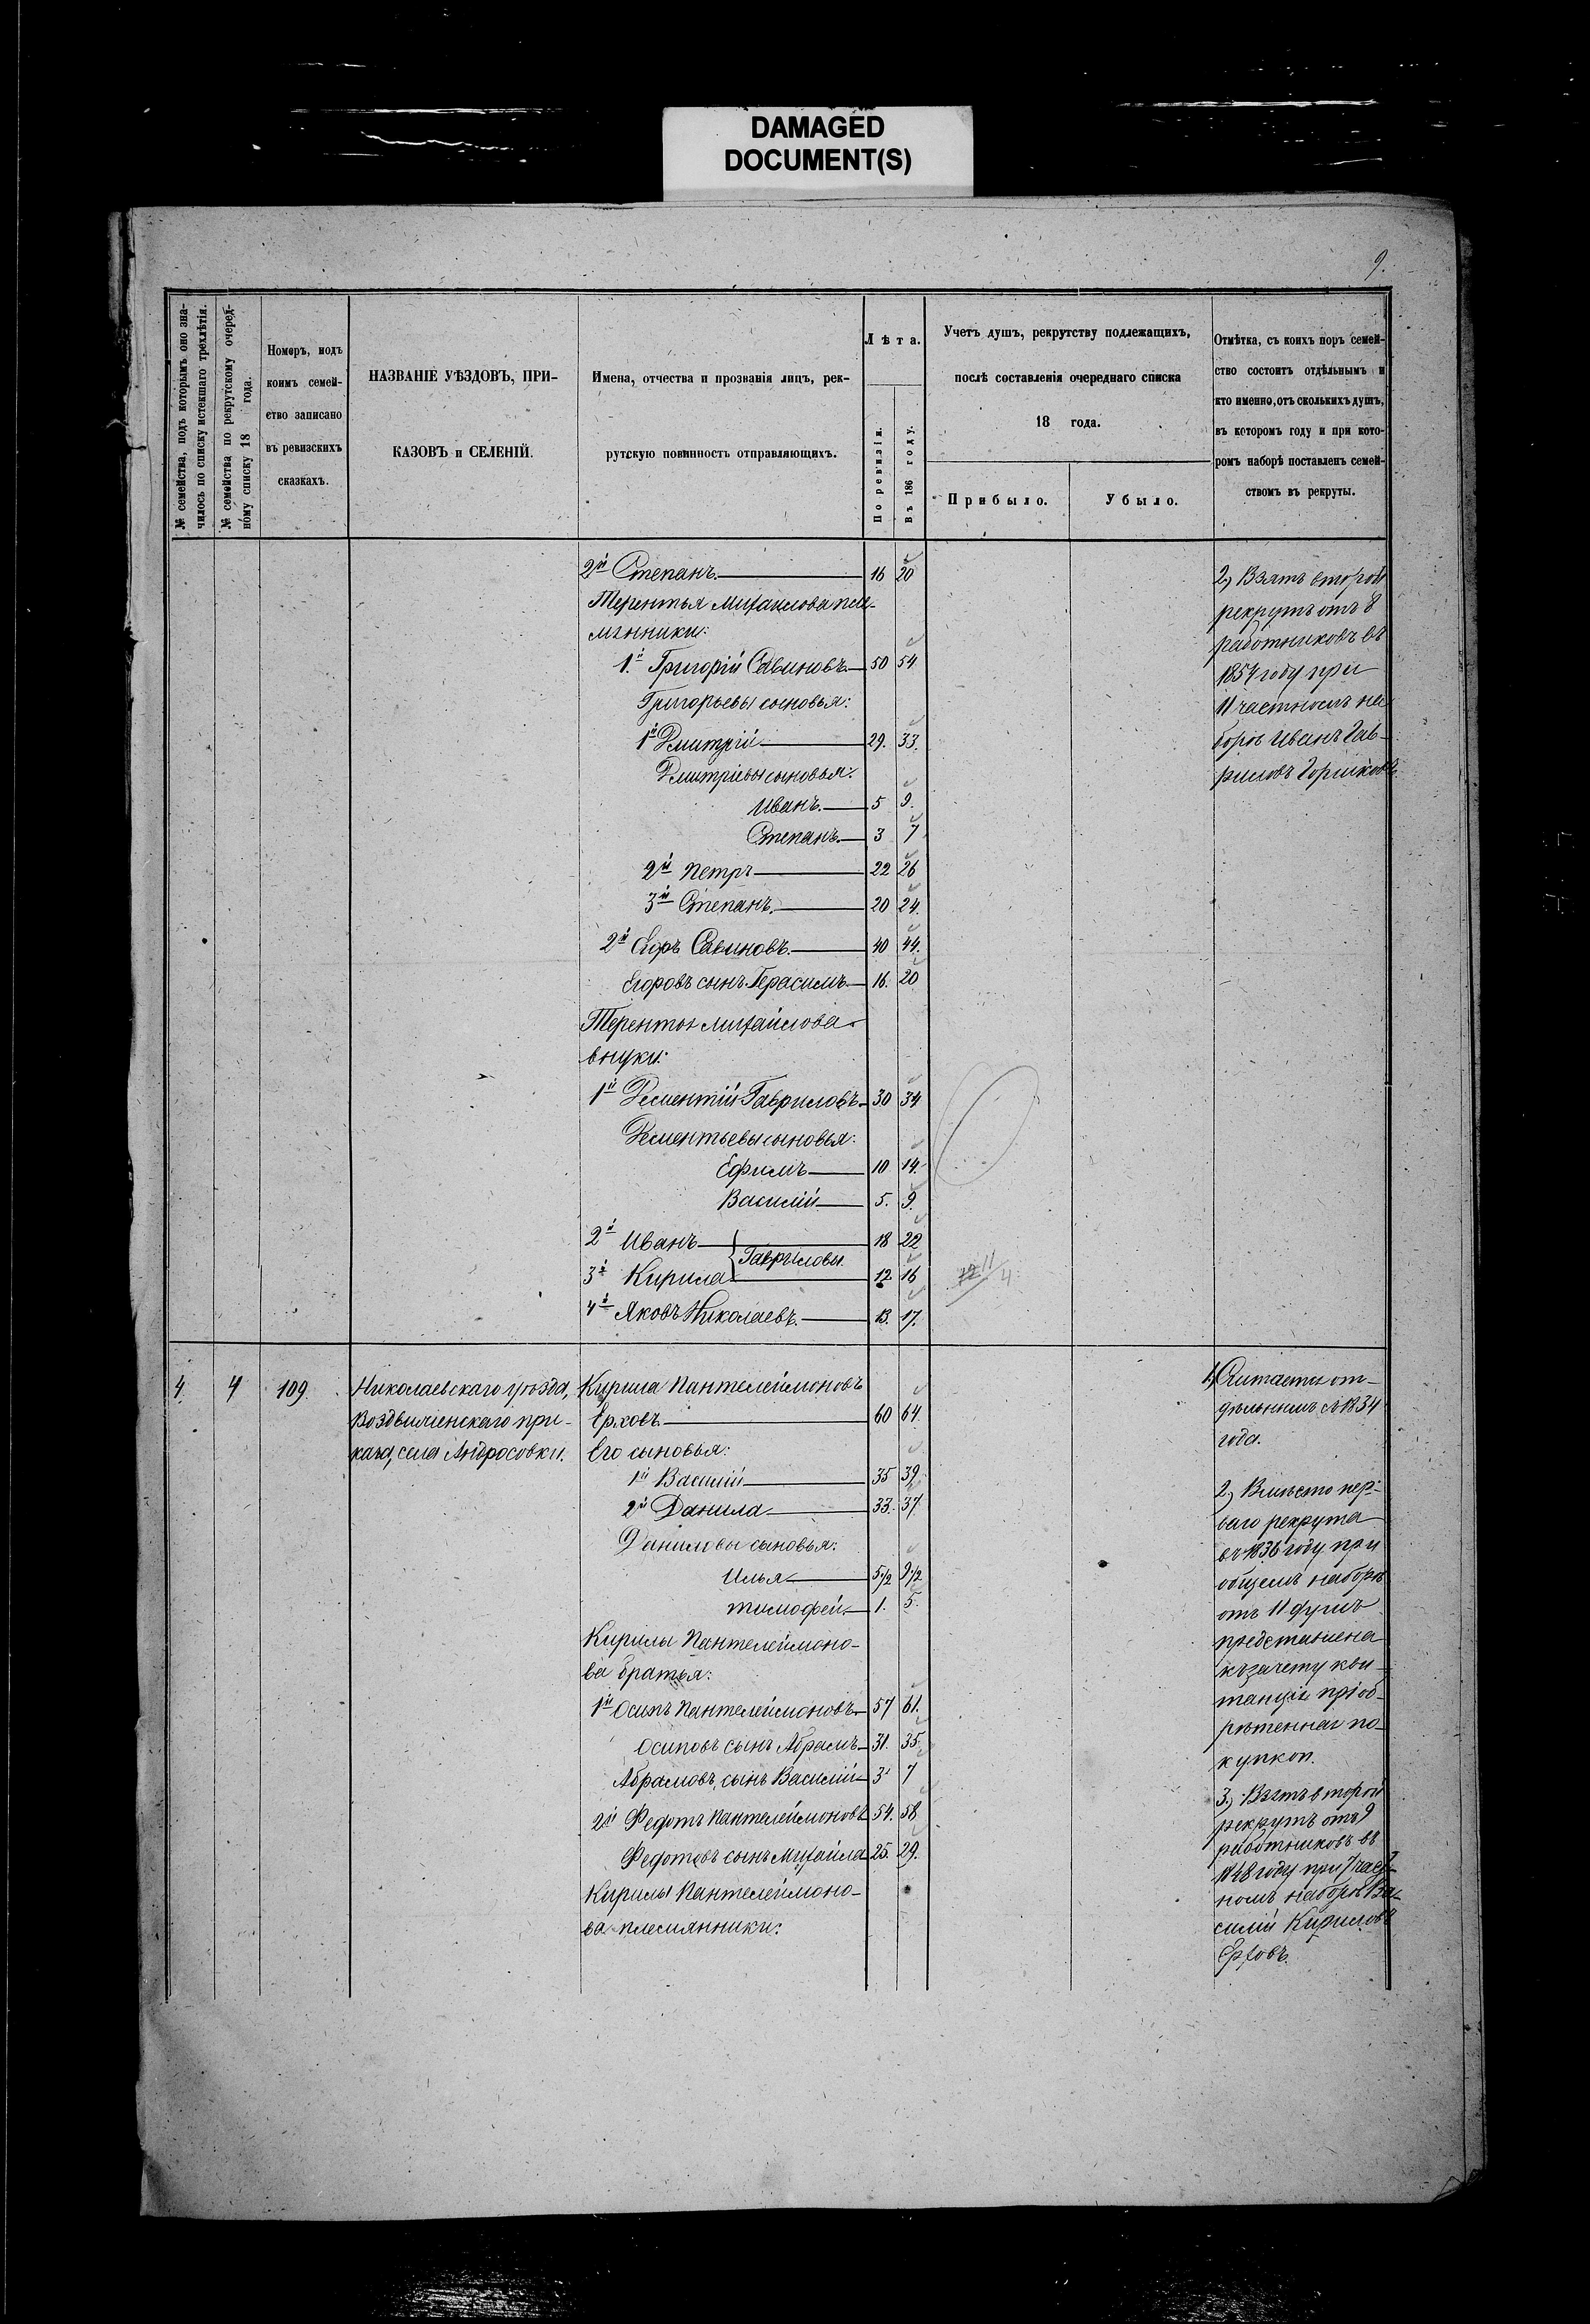 DAMAGED
DOCUMENT(S)
9.
№ семейства, подъ которымъ оно зна-
чилось по списку истекшаго трехлѣтія.
№ семейства по рекрутскому очеред-
ному списку 18 года.
Номеръ, подъ
коимъ семей-
ство записано
въ ревизскихъ
сказкахъ.
НАЗВАНІЕ УѢЗДОВЪ, ПРИ-
КАЗОВЪ и СЕЛЕНІЙ.
Имена, отчества и прозванія лицъ, рек-
рутскую повинность отправляющихъ.
Лѣта.
По ревизіи.
Въ 186 году.
Учетъ душъ, рекрутству подлежащихъ,
послѣ составленія очереднаго списка
18 года.
Прибыло.
Убыло.
Отмѣтка, съ коихъ поръ семей-
ство состоитъ отдѣльнымъ и
кто именно, отъ сколькихъ душъ,
въ которомъ году и при кото-
ромъ наборѣ поставленъ семей-
ствомъ въ рекруты.
2й Степанъ 16 20
Терентья Михайлова пле-
мянники:
1й Григорій Савиновъ 50 54
Григорьевы сыновья:
1й Дмитрій 29. 33.
Дмитріевы сыновья:
Иванъ. 5 9.
Степанъ. 3 7
2й Петръ 22 26
3й Степанъ. 20 24.
2й Егоръ Савиновъ. 40 44.
Егоровъ сынъ Герасимъ 16. 20
Терентья Михайлова
внуки:
1й Дементій Гавриловъ 30 34
Дементьевы сыновья:
Ефимъ 10 14.
Василій 5. 9.
2й Иванъ 18 22
Гавриловы.
3й Кирила 12 16
4й Яковъ Николаевъ. 13. 17.
12 11/4
2) Взятъ второй
рекрутъ отъ 8
работниковъ въ
1854 году при
11 частномъ на
борѣ Иванъ Гав-
риловъ Горшковъ.
4. 4 109.
Николаевскаго уѣзда,
Воздвиженскаго при-
каза, села Андросовки.
Кирила Пантелеймоновъ
Ерховъ 60 64.
Его сыновья:
1й Василій 35 39.
2й Данила 33. 37.
Даниловы сыновья:
Илья 5 1/2 9 1/2
Тимофей 1. 5.
Кирилы Пантелеймоно-
ва братья:
1й Осипъ Пантелеймоновъ 57 61.
Осиповъ сынъ Абрамъ 31. 35.
Абрамовъ сынъ Василій 3 7
2й Федотъ Пантелеймоновъ 54. 58.
Федотовъ сынъ Михайла 25. 29.
Кирилы Пантелеймоно-
ва племянники:
1) Считается от-
дѣльнымъ съ 1834
года.
2) Вмѣсто пер-
ваго рекрута
въ 1836 году при
общемъ наборѣ
отъ 11 душъ
представлена
къ зачету кви-
танція пріоб-
рѣтенная по-
купкою.
3) Взятъ второй
рекрутъ отъ 9
работниковъ въ
1848 году при 7 част-
номъ наборѣ Ва-
силій Кириловъ
Ерховъ.